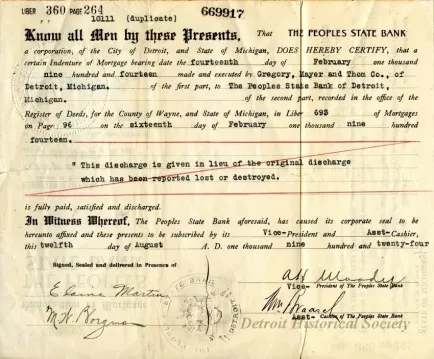 LIBER 360 PAGE 264
10111 (duplicate)
669917
Know all Men by these Presents, That THE PEOPLES STATE BANK
a corporation, of the City of Detroit, and State of Michigan, DOES HEREBY CERTIFY, that a
certain Indenture of Mortgage bearing date the fourteenth day of February one thousand
nine hundred and fourteen made and executed by Gregory, Mayer and Thom Co., of
Detroit, Michigan. of the first part, to The Peoples State Bank of Detroit,
Michigan. of the second part, recorded in the office of the
Register of Deeds, for the County of Wayne, and State of Michigan, in Liber 693 of Mortgages
on Page 96 on the sixteenth day of February one thousand nine hundred
fourteen.
"This discharge is given in lieu of the original discharge
which has been reported lost or destroyed.
is fully paid, satisfied and discharged.
In Witness Whereof, The Peoples State Bank aforesaid, has caused its corporate seal to be
hereunto affixed and these presents to be subscribed by its Vice-President and Asst-Cashier,
this twelfth day of August A. D. one thousand nine hundred and twenty-four
Signed, Sealed and delivered in Presence of
Vice- President of The Peoples State Bank
Elaine Martin
Asst- Cashier of The Peoples State Bank
Detroit Historical Society